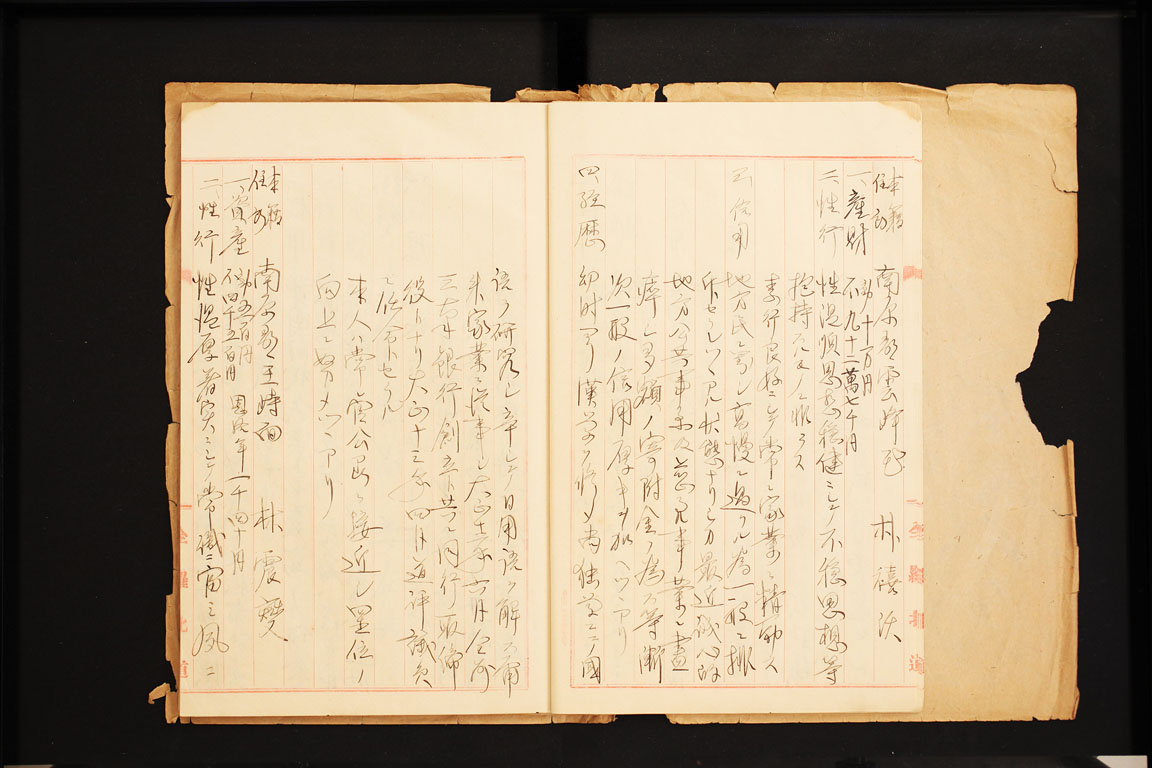 本籍
住所 南原郡雲峰面 朴禧沃
一、産財 動 十一万円
不 九十二萬七千円
二、性行 性温順思想穏健ニシテ不穏思想等
抱持
素行良好ニシテ常ニ家業ニ精励ス
三、信用 地方民ニ対シ高慢ニ過クル為一般ニ排
斥セラレツヽアル状態ナリシカ最近誠心的
地方公共事業及慈善事業ニ盡
瘁シ多額ノ寄附金ヲ為ス等漸
次一般ノ信用厚キヲ加ヘツヽアリ
四、経歴 幼時ヨリ漢学ヲ修メ尚独学ニテ國
語ヲ研究シ辛シテ日用語ヲ解ス
来家業ニ従事シ大正十一年六月全州
三南銀行創立共ニ同行ノ取締
役トナリ大正十三年四月道評議員
ニ任命セラル
本人ハ常ニ官公吏ニ接近シ 位ノ
向上ニ努メツヽアリ
本籍
住所 南原郡王峙面 林震燮
一、資産 動 五百円
不 四千五百円 恩給年一千四十円
二、性行 性温厚着実ニシテ常識ニ富ミ夙ニ
全羅北道